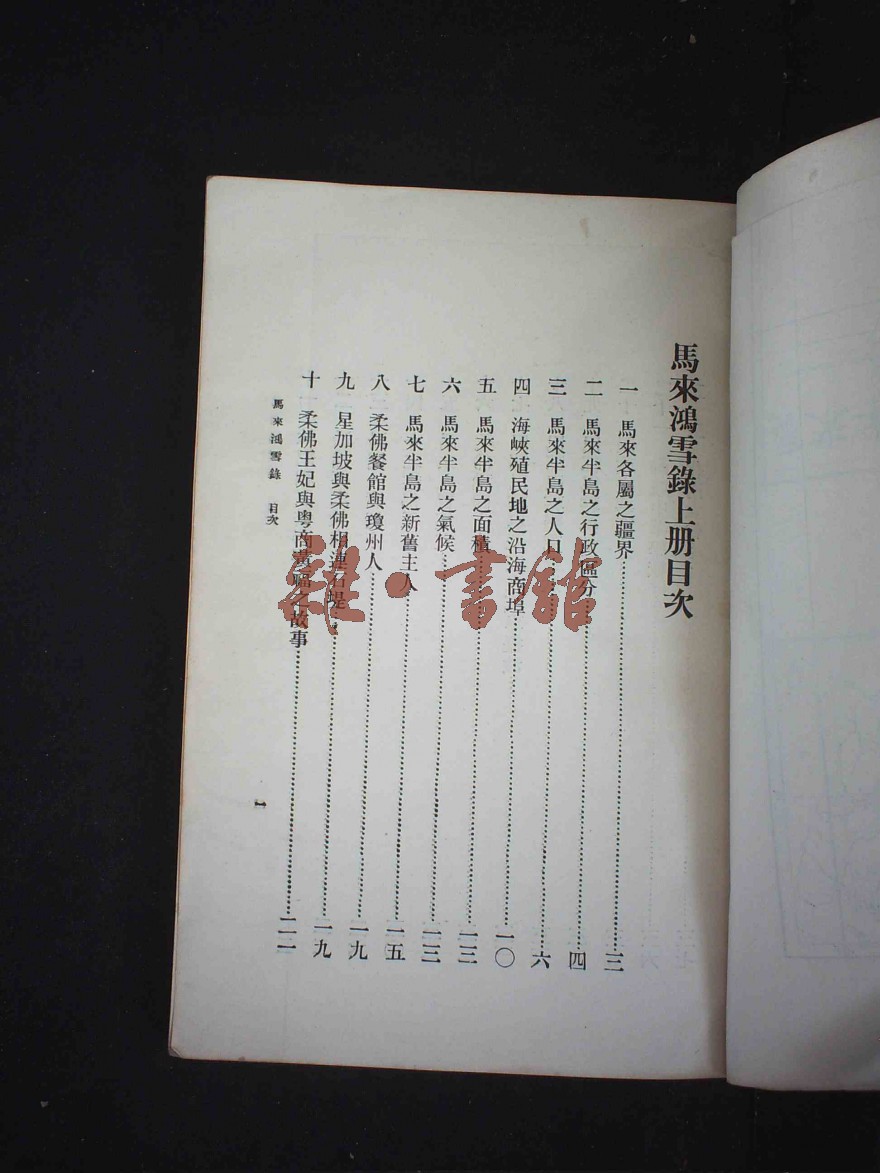 馬來鴻雪錄上册目次
一 馬來各屬之疆界……三
二 馬來半島之行政區分……四
三 馬來半島之人口……六
四 海峽殖民地之沿海商埠……一〇
五 馬來半島之面積……一三
六 馬來半島之氣候……一三
七 馬來半島之新舊主人……一五
八 柔佛餐館與瓊州人……一九
九 星加坡與柔佛相連石堤……一九
十 柔佛王妃與粤商之故事……
馬來鴻雪錄 目次
一
雜·書館